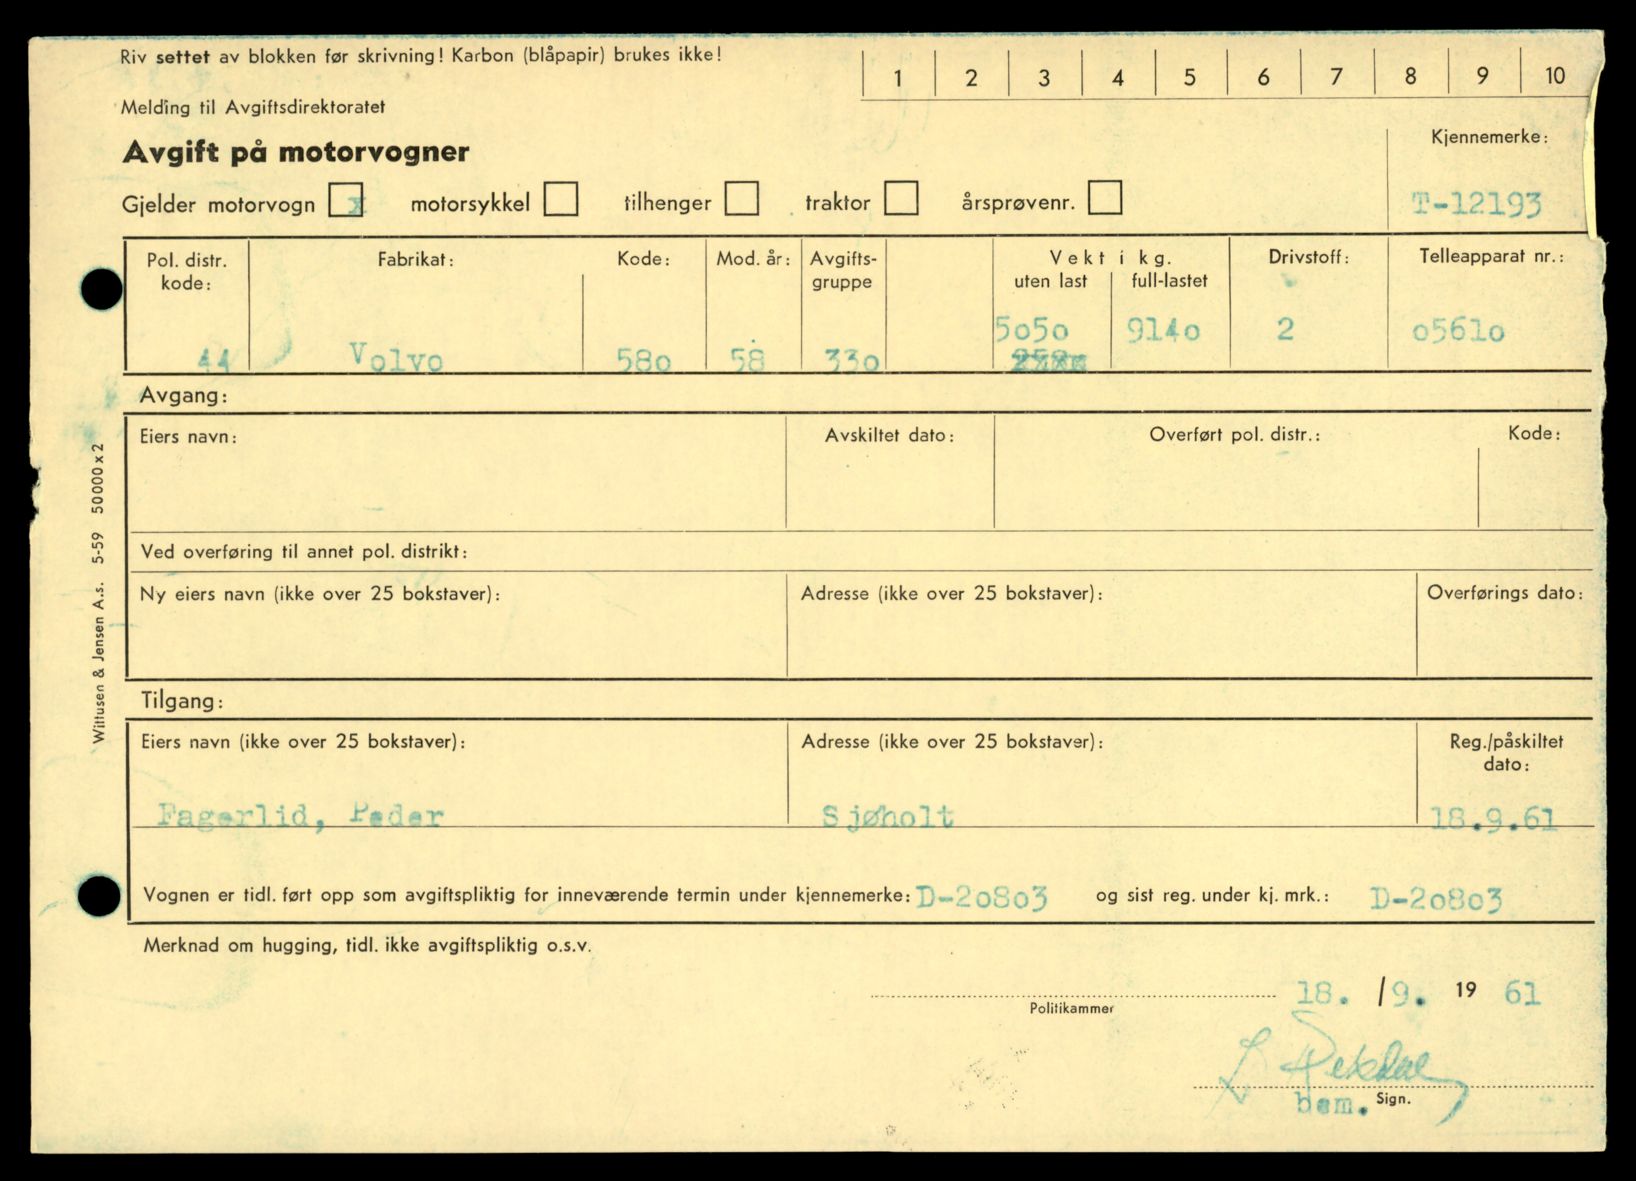 Riv settet av blokken før skrivning! Karbon (blåpapir) brukes ikke!
1 2 3 4 5 6 7 8 9 10
Melding til Avgiftsdirektoratet
Avgift på motorvogner
Kjennemerke:
Gjelder motorvogn x motorsykkel tilhenger traktor årsprøvenr.
T-12193
Pol. distr. kode: Fabrikat: Kode: Mod. år: Avgifts-gruppe Vekt i kg. uten last full-lastet Drivstoff: Telleapparat nr.:
5o5o 914o 2 o561o
44 Volvo 58o 58 33o
Avgang:
Eiers navn: Avskiltet dato: Overført pol. distr.: Kode:
Ved overføring til annet pol. distrikt:
Ny eiers navn (ikke over 25 bokstaver): Adresse (ikke over 25 bokstaver): Overførings dato:
Tilgang:
Eiers navn (ikke over 25 bokstaver): Adresse (ikke over 25 bokstaver): Reg./påskiltet dato:
Fagerlid, Peder Sjøholt 18.9.61
Vognen er tidl. ført opp som avgiftspliktig for inneværende termin under kjennemerke: D-2o8o3 og sist reg. under kj. mrk.: D-2o8o3
Merknad om hugging, tidl. ikke avgiftspliktig o.s.v.
18. /9. 19 61
Politikammer
bem. Sign.
Wittusen & Jensen A.s. 5-59 50000 x 2